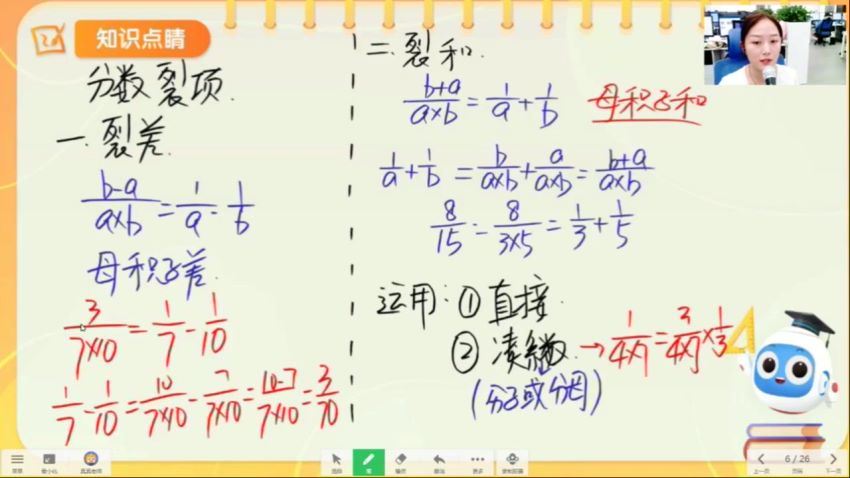 知识点睛
分数裂项.
一.裂差.
b-a/a×b=1/a-1/b
母积子差.
3/7×10=1/7-1/10
1/7-1/10=10/7×10-7/7×10=10-7/7×10=3/70
二.裂和.
b+a/a×b=1/a+1/b 母积子和
1/a+1/b=b/a×b+a/a×b=b+a/a×b
8/15=8/3×5=1/3+1/5
运用:①直接.
②凑系数.→1/4×7=3/4×7×1/3
(分子或分母)
菜单
选择
笔
橡皮
撤销
更多
6 / 26
上一页
下一页